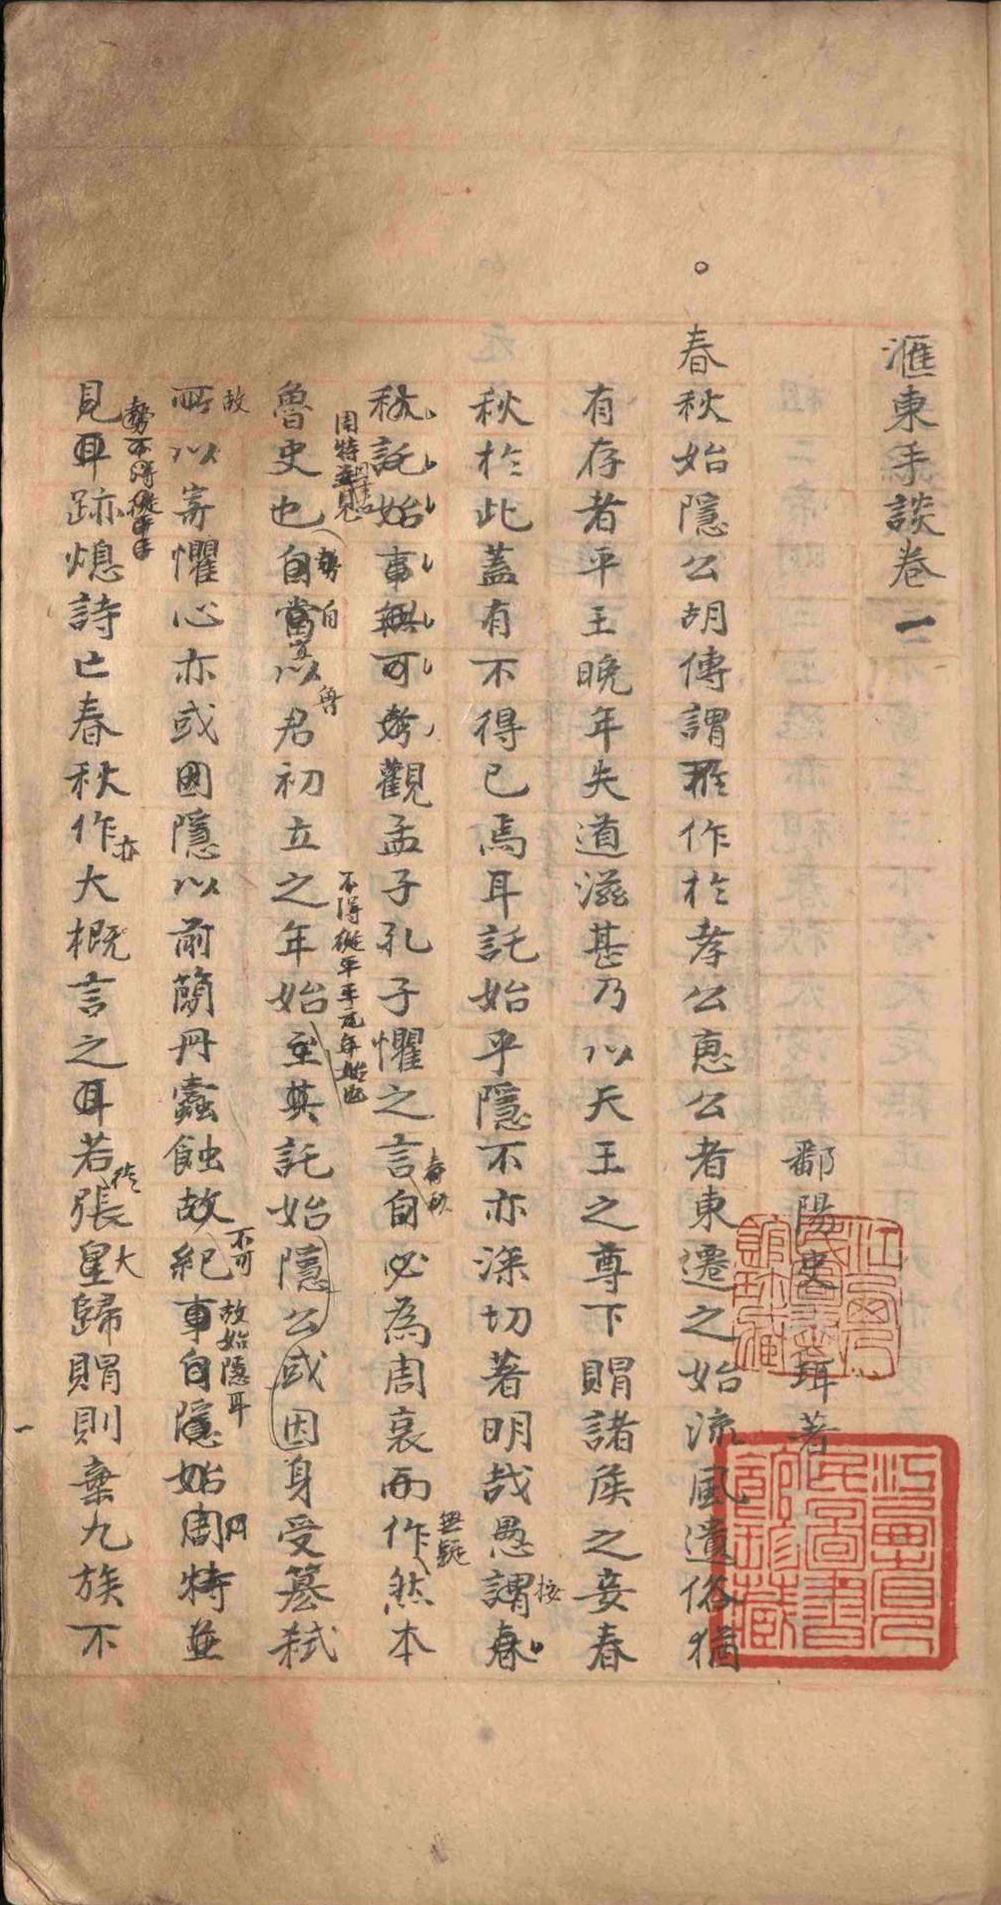 滙東手談卷一
鄱陽史珥著
春秋始隱公胡傳謂不作於孝公惠公者東遷之始流風遺俗猶
有存者平王晚年失道滋甚乃以天王之尊下賵諸侯之妾春
秋於此蓋有不得已焉耳託始乎隱不亦深切著明哉愚謂春
按
秋託始事無可考觀孟子孔子懼之言自必為周衰而作然本
春秋
無疑
魯史也自當以君初立之年始至其託始隱公或因身受篡弒
周特並見
勢自
魯
不得從平王元年始也
所以寄懼心亦或因隱以前簡丹蠹蝕故紀事自隱始周特並
故
不可
故始隱耳
見耳跡熄詩亡春秋作大概言之耳若張皇歸賵則棄九族不
勢不得從平王
亦
從
大
一
江西省立圖書館珍藏